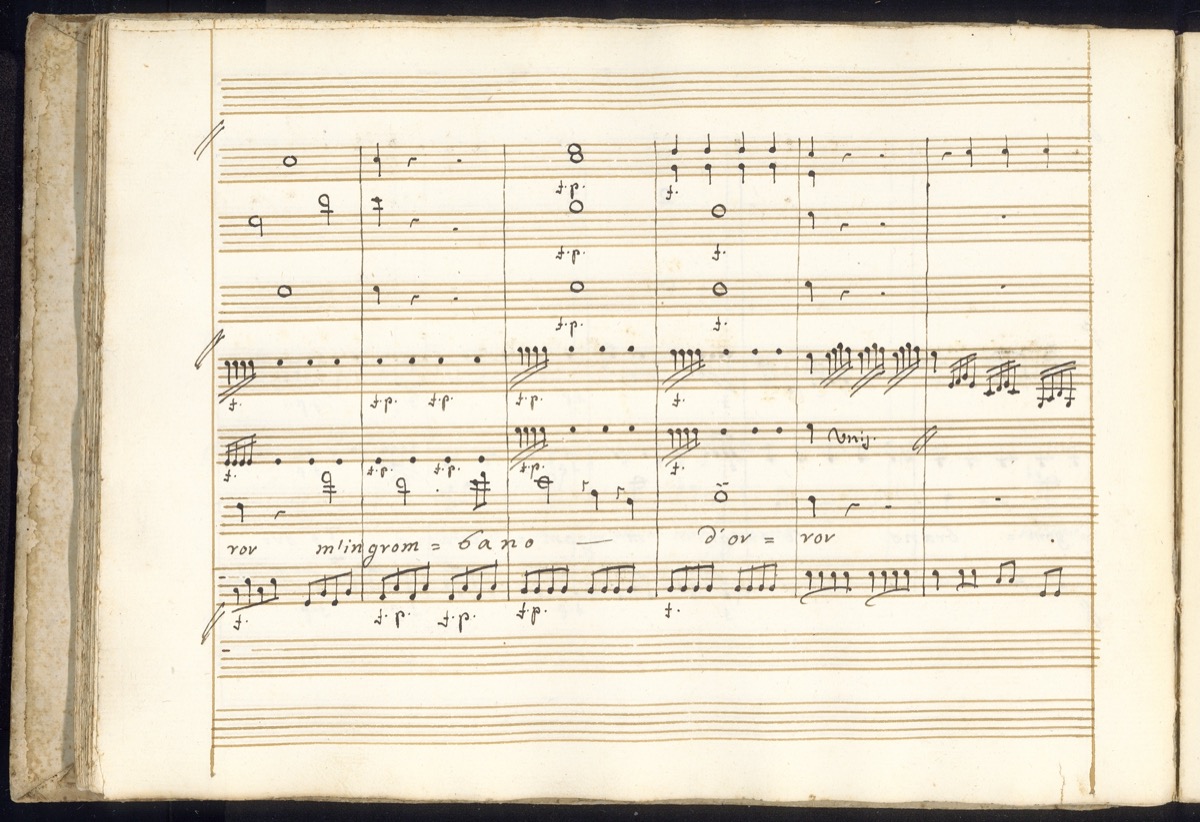 f.p. f.
f.p. f.
f.p. f.
f. f.p. f.p. f.p. f.
Unis.
f. f.p. f.p. f.p. f.
ror m'ingrom = bano — d'or = ror
f. f.p. f.p. f.p. f.